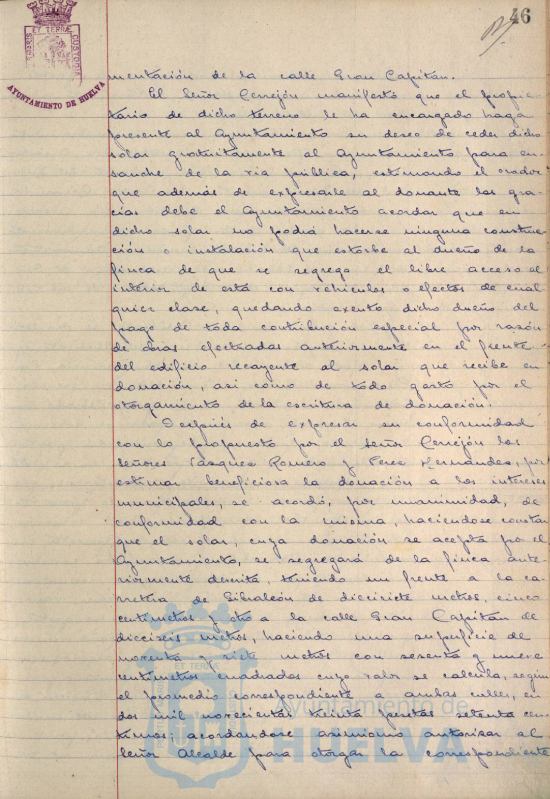 46
AYUNTAMIENTO DE HUELVA
mentación de la calle Gran Capitán.
El Señor Cerrejón manifestó que el propie-
tario de dicho terreno le ha encargado haga
presente al Ayuntamiento su deseo de ceder dicho
solar gratuitamente al Ayuntamiento para en-
sanche de la via pública, estimando el orador
que además de expresarle al donante las gra-
cias debe el Ayuntamiento acordar que en
dicho solar no podrá hacerse ninguna construc-
ción o instalación que estorbe al dueño de la
finca de que se segrega el libre acceso al
interior de esta con vehículos o efectos de cual-
quier clase, quedando exento dicho dueño del
pago de toda contribución especial por razón
de obras efectuadas anteriormente en el frente
del edificio recayente al solar que recibe en
donación, asi como de todo gasto por el
otorgamiento de la escritura de donación.
Después de expresar su conformidad
con lo propuesto por el señor Cerrejón los
señores Vázquez Romero y Perez Hernandez, por
estimar beneficiosa la donación a los intereses
municipales, se acordó, por unanimidad, de
conformidad con la misma, haciendose constar
que el solar, cuya donación se acepta por el
Ayuntamiento, se segregará de la finca ante-
riormente descrita, teniendo un frente a la ca-
rretera de Gibraleón de diecisiete metros, cinco
centimetros y otro a la calle Gran Capitán de
dieciseis metros, haciendo una superficie de
noventa y siete metros con sesenta y nueve
centimetros cuadrados cuyo valor se calcula, según
el promedio correspondiente a ambas calles, en
dos mil novecientas treinta pesetas setenta cen-
timos; acordandose asimismo autorizar al
Señor Alcalde para otorgar la correspondiente
Ayuntamiento de
HUELVA